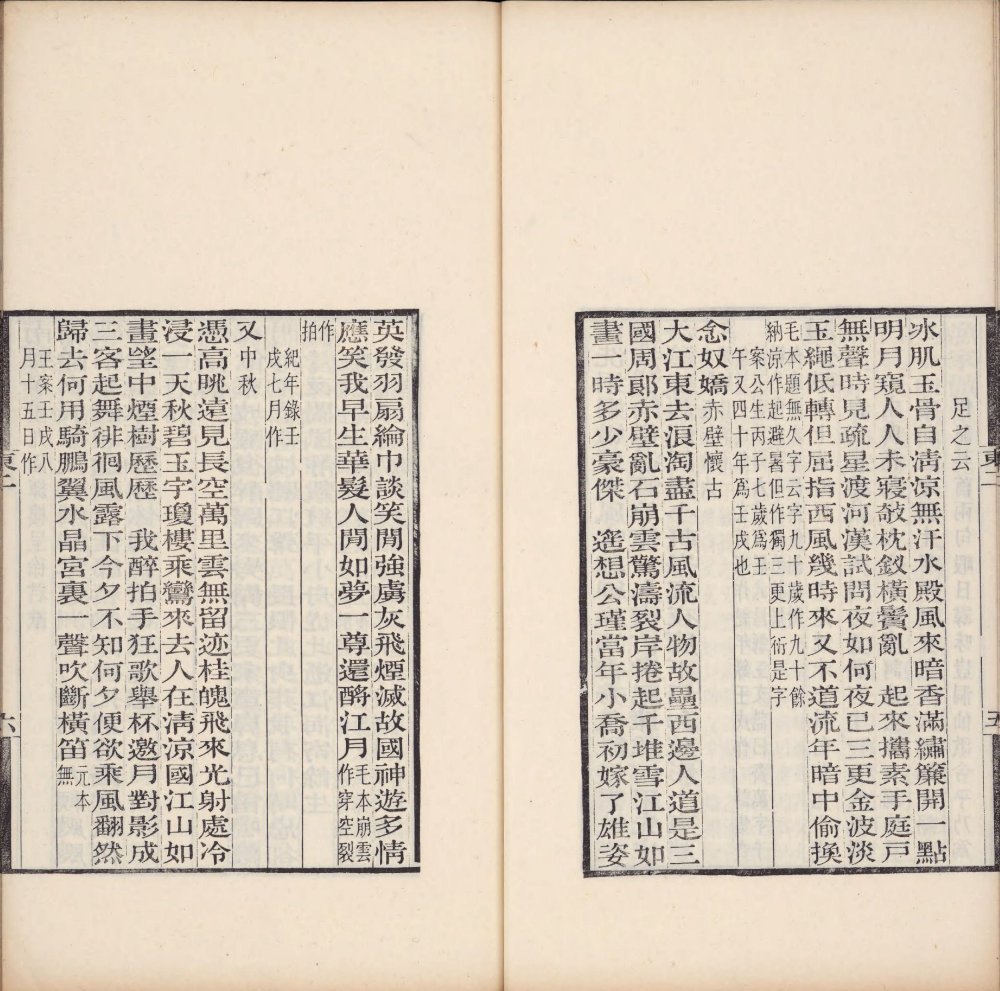 足之云
冰肌玉骨自淸涼無汗水殿風來暗香滿繡簾開一點
明月窺人人未寢攲枕釵橫鬢亂　起來攜素手庭戸
無聲時見疏星渡河漢試問夜如何夜已三更金波淡
玉繩低轉但屈指西風幾時來又不道流年暗中偷換
毛本題無久字云字九十歲作九十餘
納涼作起避暑但作獨三更上衍是字
案公生丙子七歲爲壬
午又四十年爲壬戌也
念奴嬌 赤壁懷古
大江東去浪淘盡千古風流人物故壘西邊人道是三
國周郞赤壁亂石崩雲驚濤裂岸捲起千堆雪江山如
畫一時多少豪傑　遙想公瑾當年小喬初嫁了雄姿
東二
五
英發羽扇綸巾談笑閒強虜灰飛煙滅故國神遊多情
應笑我早生華髮人閒如夢一尊還酹江月 毛本崩雲
作穿空裂
作
拍
紀年錄壬
戌七月作
又 中秋
憑高眺遠見長空萬里雲無留迹桂魄飛來光射處冷
浸一天秋碧玉宇瓊樓乘鸞來去人在淸涼國江山如
畫望中煙樹歷歷　我醉拍手狂歌舉杯邀月對影成
三客起舞徘徊風露下今夕不知何夕便欲乘風翻然
歸去何用騎鵬翼水晶宮裏一聲吹斷橫笛 元本
無
王案壬戌八
月十五日作
東二
六